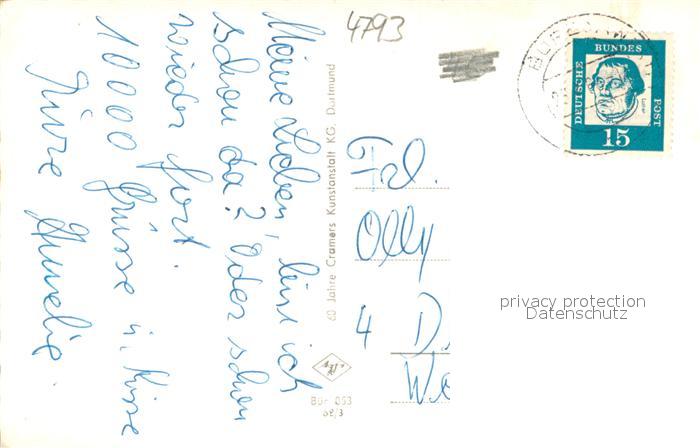 4793
Meine Lieben, bin ich
schon da? Oder schon
wieder fort.
10000 Grüsse u. Küsse
60 Jahre Cramers Kunstanstalt KG, Dortmund
Bür 053
62/3
Frl.
Olly
4 D.
DEUTSCHE
BUNDES
POST
15
privacy protection
Datenschutz